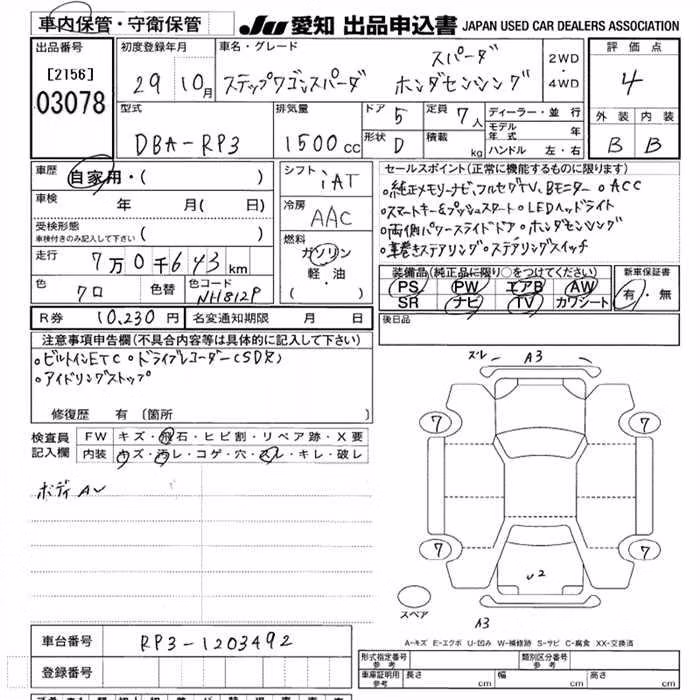 車内保管・守衛保管
JU 愛知 出品申込書 JAPAN USED CAR DEALERS ASSOCIATION
出品番号
[2156]
03078
初度登録年月
29 10月
車名・グレード
ステップワゴンスパーダ
スパーダ
ホンダセンシング
2WD
・
4WD
評価点
4
外装 内装
B B
型式
DBA-RP3
排気量
1500cc
ドア 5
形状 D
定員 7人
積載 kg
ディーラー・並行
モデル年式 年
ハンドル 左・右
車歴
自家用・( )
車検 年 月( 日)
受検形態
車検付きのみ記入して下さい ( )
走行 7万0千643km
色 クロ
色替
色コード NH812P
シフト
iAT
冷房
AAC
燃料
ガソリン
軽・油
( )
セールスポイント(正常に機能するものに限ります)
○純正メモリーナビ,フルセグTV,Bモニター ○ACC
○スマートキー&プッシュスタート ○LEDヘッドライト
○両側パワースライドドア ○ホンダセンシング
○革巻きステアリング ○ステアリングスイッチ
装備品(純正品に限り○をつけてください)
PS PW エアB AW
SR ナビ TV カワシート
新車保証書
有・無
R券 10,230円
名変通知期限 月 日
後日品
注意事項申告欄(不具合内容等は具体的に記入して下さい)
○ビルトインETC ○ドライブレコーダー(SD欠)
○アイドリングストップ
修復歴 有 〔箇所 〕
検査員
記入欄
FW キズ・飛石・ヒビ割・リペア跡・X要
内装 キズ・汚レ・コゲ・穴・スレ・キレ・破レ
ボディ A
スレ A3
7 7
7 7
U2
スペア
A3
A-キズ E-エクボ U-凹み W-補修跡 S-サビ C-腐食 XX-交換済
車台番号 RP3-1203492
登録番号
型式指定番号 参考
類別区分番号 参考
車庫証明用 参考 長さ cm 幅 cm 高さ cm